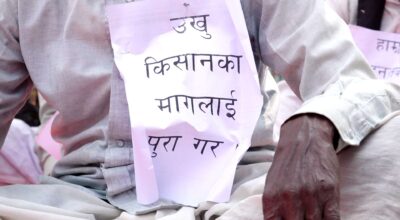 उखु
किसानका
मागलाई
पुरा गर ।
हाम्रा